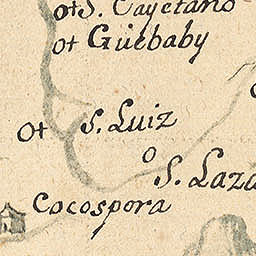 S. Cayetano
Guebaby
S. Luiz
S. Laza
Cocospora